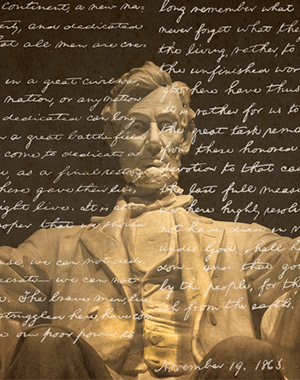 continent, a new na-
erty, and dedicated
hat all men are cre-
in a great civil war,
nation, or any nation
dedicated can long
n a great battle-field
come to dedicate a
, as a final resting
here gave their lives,
ight live. It is alto-
oper that we should
we can not dedi-
crate— we can not
The brave men, liv-
struggled here, have con-
our poor power to
long remember what
never forget what the
the living, rather, to
the unfinished wor
ght here have thus
It is rather for us to
the great task rema
from these honored
devotion to that cau
the last full measu
we here highly resolv
not have died in v
under God, shall h
dom— and that gov
by the people, for th
ish from the earth.
November 19, 1863.